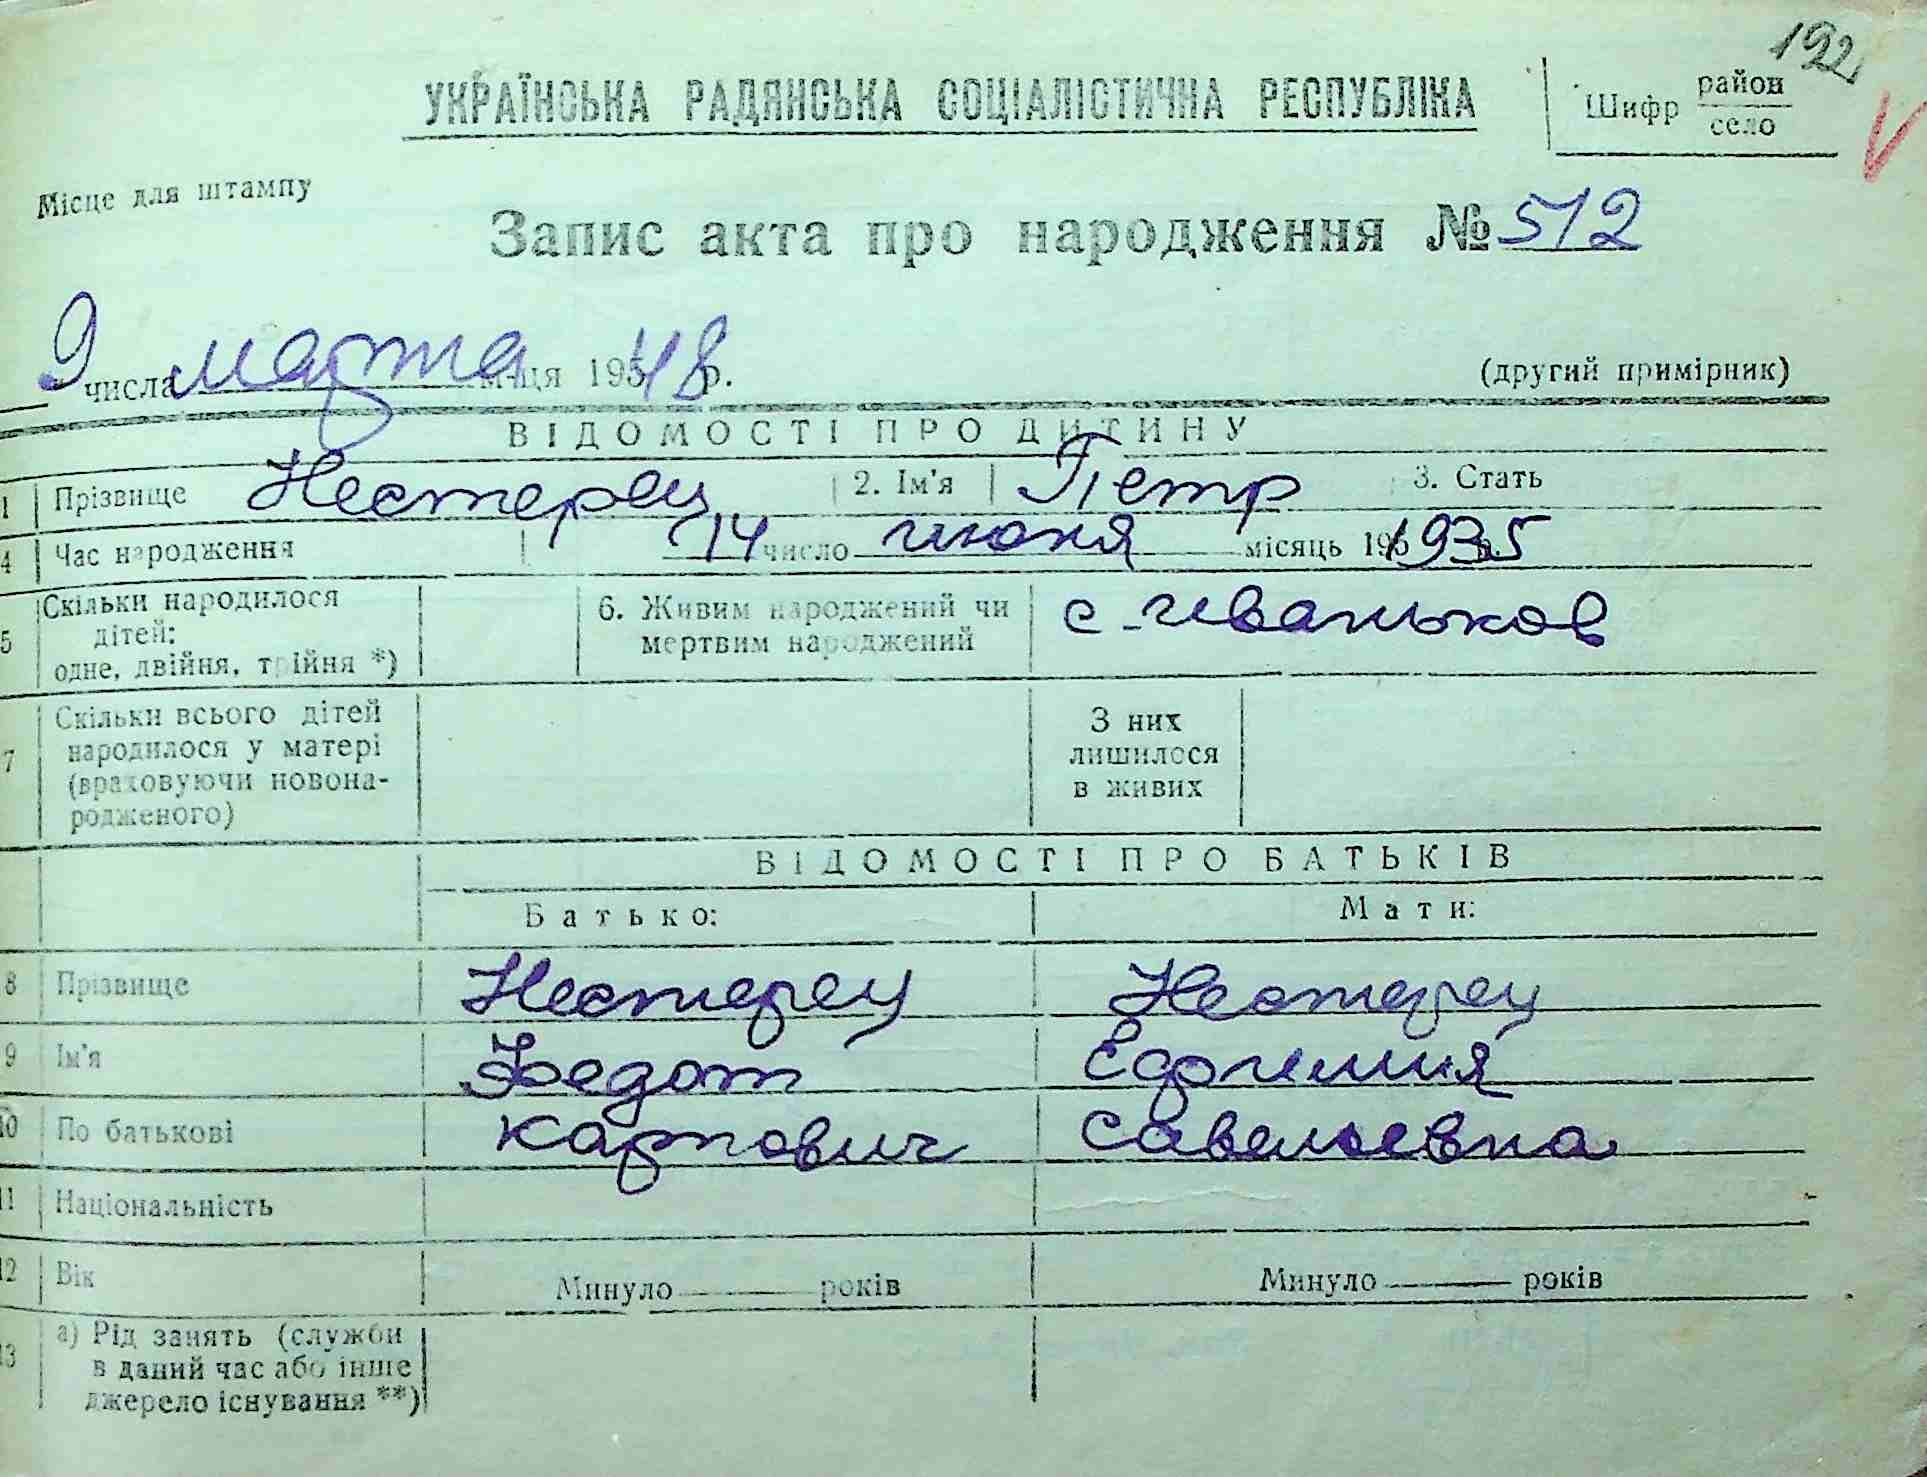 192
УКРАЇНСЬКА РАДЯНСЬКА СОЦІАЛІСТИЧНА РЕСПУБЛІКА
Шифр район
село
Місце для штампу
Запис акта про народження № 512
9 числа марта м-ця 195 48 р.
(другий примірник)
ВІДОМОСТІ ПРО ДИТИНУ
1 Прізвище Нестерец 2. Ім'я Петр 3. Стать
4 Час народження 14 число июня місяць 195 1935
5 Скільки народилося дітей: одне, двійня, трійня *) 6. Живим народжений чи мертвим народжений с. Иваньков
7 Скільки всього дітей народилося у матері (враховуючи новона-родженого) З них лишилося в живих
ВІДОМОСТІ ПРО БАТЬКІВ
Батько: Мати:
8 Прізвище Нестерец Нестерец
9 Ім'я Федот Ефимия
10 По батькові Карпович Савельевна
11 Національність
12 Вік Минуло років Минуло років
13 а) Рід занять (служби в даний час або інше джерело існування **)